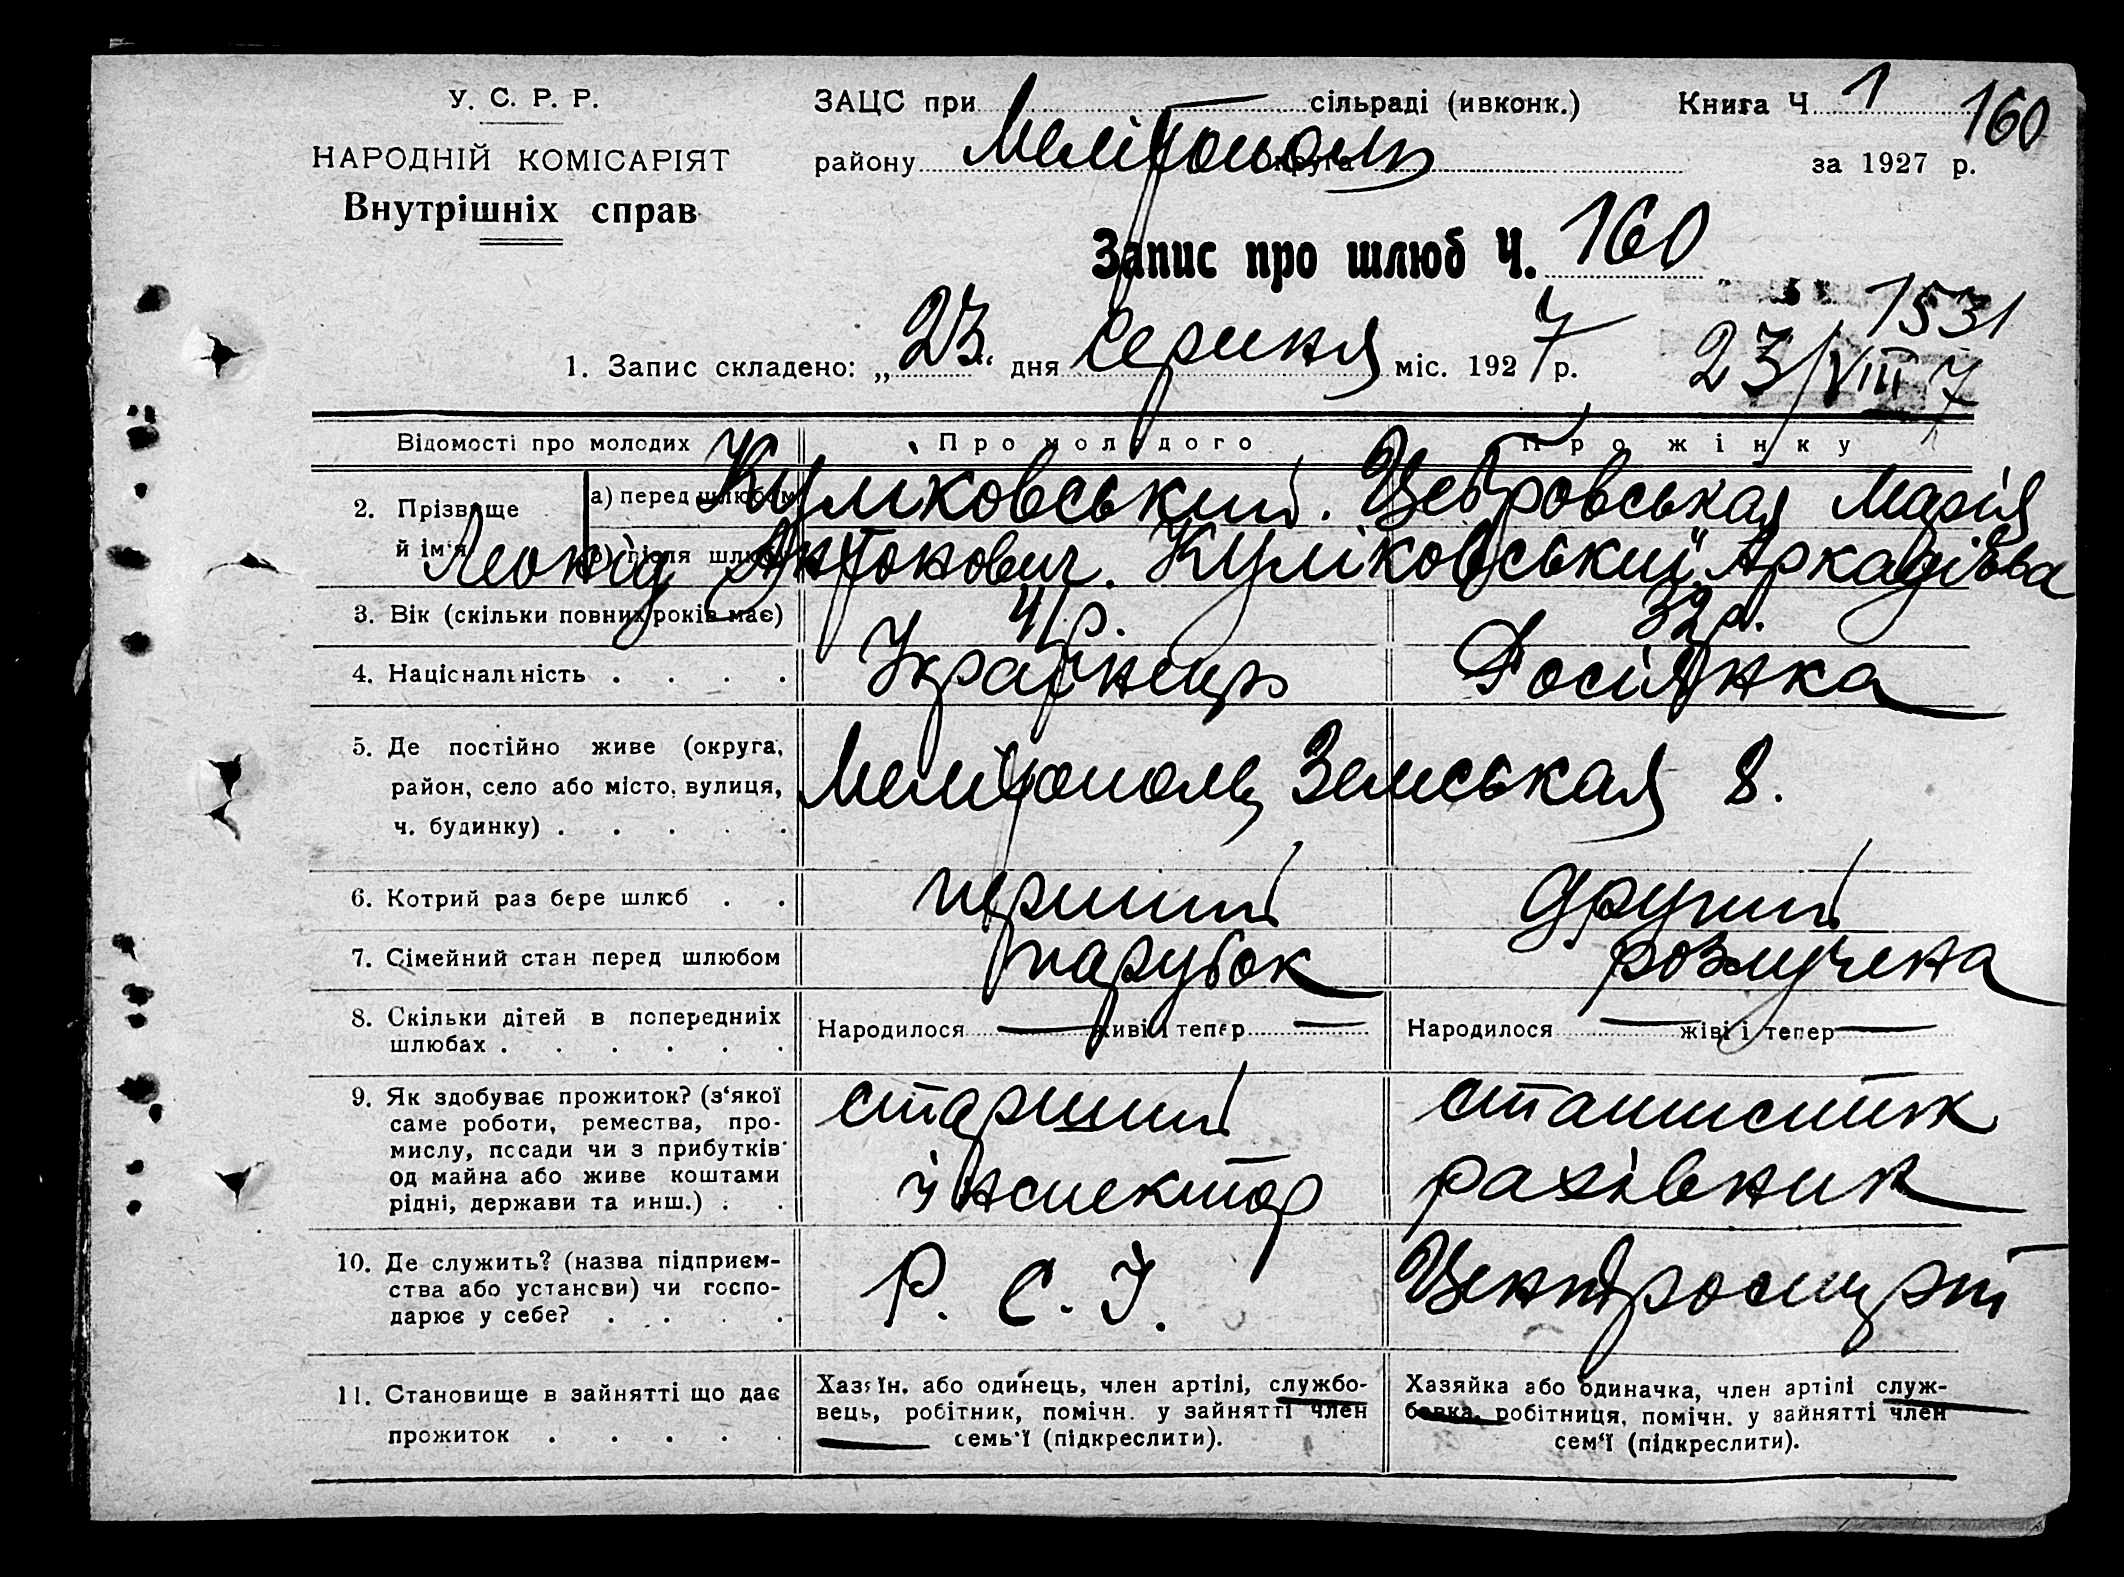 У. С. Р. Р.
НАРОДНІЙ КОМІСАРІЯТ
Внутрішніх справ
ЗАЦС при сільраді (ивконк.)
Книга Ч 1
160
району Мелітополь округа
за 1927 р.
Запис про шлюб Ч. 160
1531
23/VIII 7
1. Запис складено: „23“ дня Серпня міс. 1927 р.
Відомості про молодих
Про молодого
Про жінку
2. Прізвище й ім‘я
а) перед шлюбом
після шлюбу
Куліковський Цебровськая Марія
Леонід Антонович. Куліковський Аркадієва
3. Вік (скільки повних років має)
41 р.
32 р.
4. Національність
Українець
Росіянка
5. Де постійно живе (округа,
район, село або місто, вулиця,
ч. будинку)
Мелітополь, Земськая 8.
6. Котрий раз бере шлюб
перший
другий
7. Сімейний стан перед шлюбом
парубок
розлучена
8. Скільки дітей в попередниіх
шлюбах
Народилося — живі і тепер —
Народилося — жіві і тепер —
9. Як здобуває прожиток? (з‘якої
саме роботи, ремества, про-
мислу, посади чи з прибутків
од майна або живе коштами
рідні, держави та инш.)
старший
інспектор
статистик
рахівник
10. Де служить? (назва підприєм-
ства або установи) чи госпо-
дарює у себе?
Р. С. І.
Центроспирт
11. Становище в зайнятті що дає
прожиток
Хазяїн, або одинець, член артілі, службо-
вець, робітник, помічн. у зайнятті член
семь‘ї (підкреслити).
Хазяйка або одиначка, член артілі служ-
бовка, робітниця, помічн. у зайнятті член
сем‘ї (підкреслити).